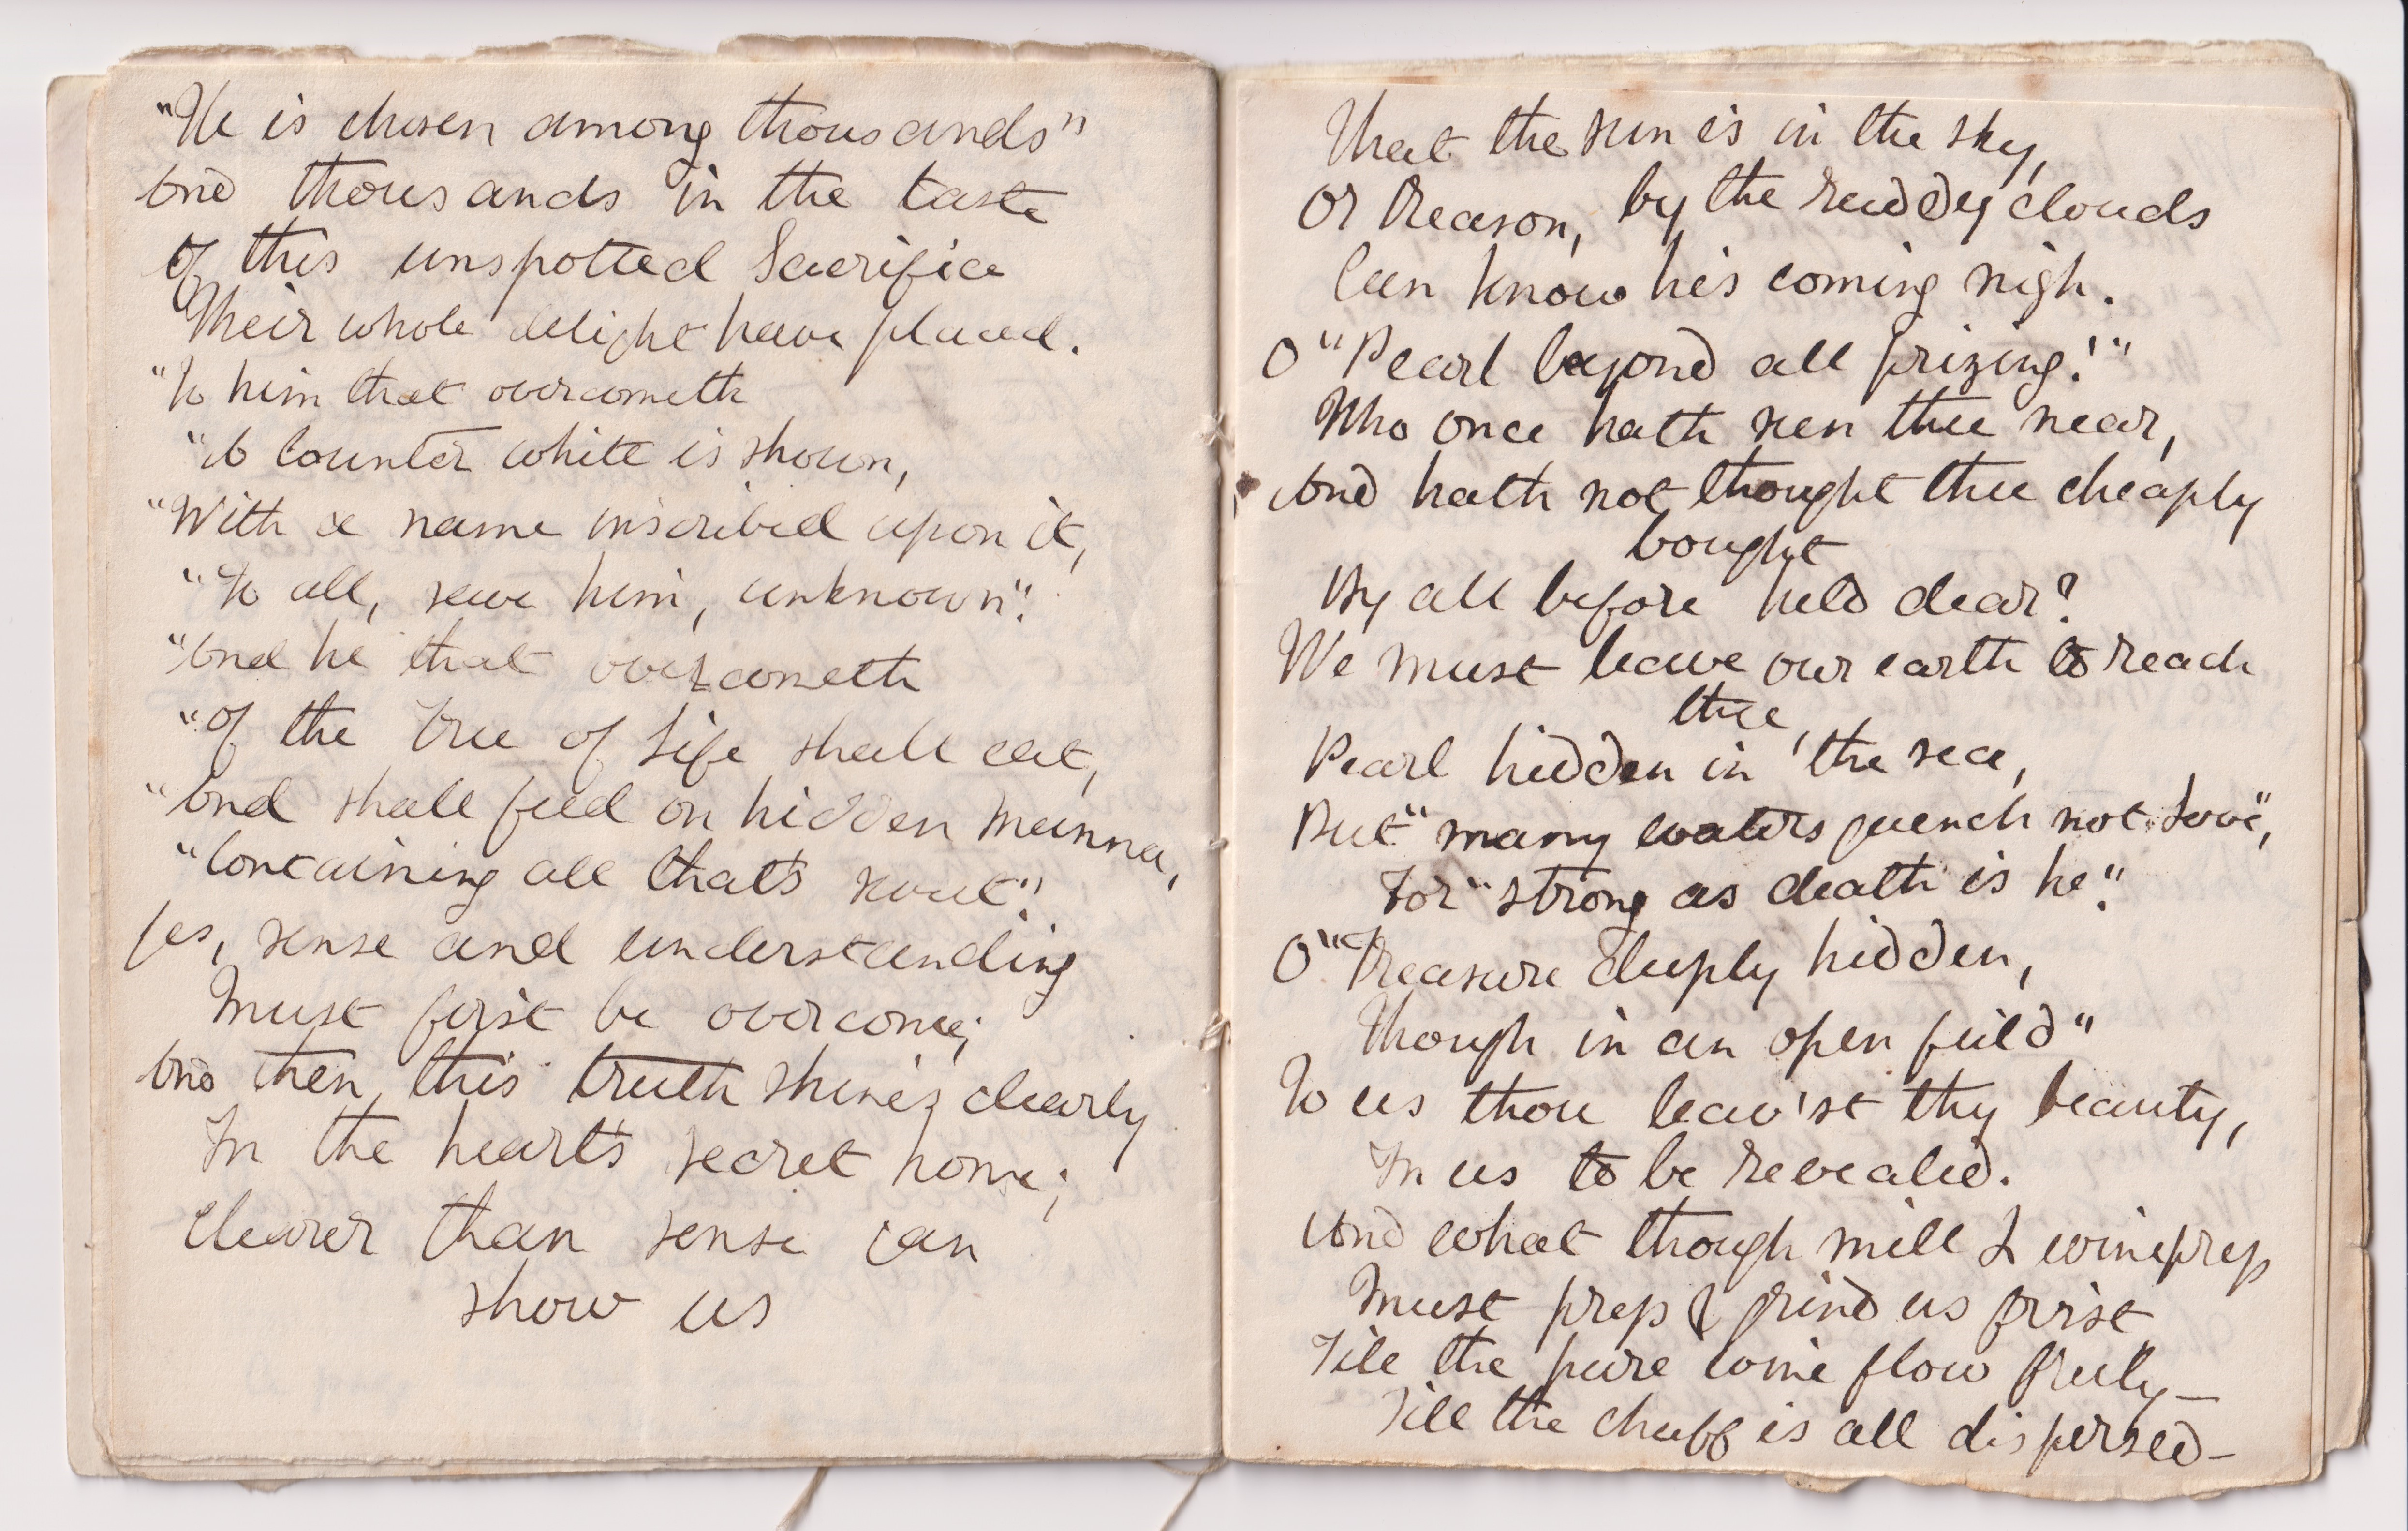 "He is chosen among thousands"
And thousands in the taste
Of this unspotted Sacrifice
Their whole delight have placed.
"To him that overcometh
"A Counter white is shown,
"With a name inscribed upon it,
"To all, save him, unknown".
"And he that overcometh
"Of the Tree of Life shall eat,
"And shall feed on hidden Manna,
"Containing all that's sweet".
Yes, sense and understanding
Must first be overcome;
And then, this truth shines clearly
In the heart's secret home;
Clearer than sense can
show us
That the sun is in the sky,
Or Reason, by the ruddy clouds
Can know he's coming nigh.
O "Pearl beyond all prizing!"
Who once hath seen thee near,
And hath not thought thee cheaply
bought
By all before held dear?
We must leave our earth to reach
thee,
Pearl hidden in the sea,
But "many waters quench not Love",
For "strong as death is he".
O "Treasure deeply hidden,
Though in an open field"
To us thou leav'st thy beauty,
In us to be revealed.
And what though mill & winepress
Must press & grind us first
Till the pure wine flow freely—
Till the chaff is all dispersed—